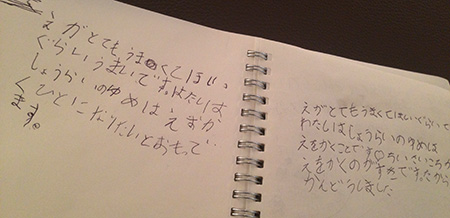 えがとてもうまくてはい。
ぐらいうまいです。わたしは
しょうらいのゆめはえをか
くひとになりたいとおもって
ます。
えがとてもうまくてはいぐらいて
わたしはしょうらいのゆめは
えをかくことです
えをかくのがすきですたから
かんどうしました